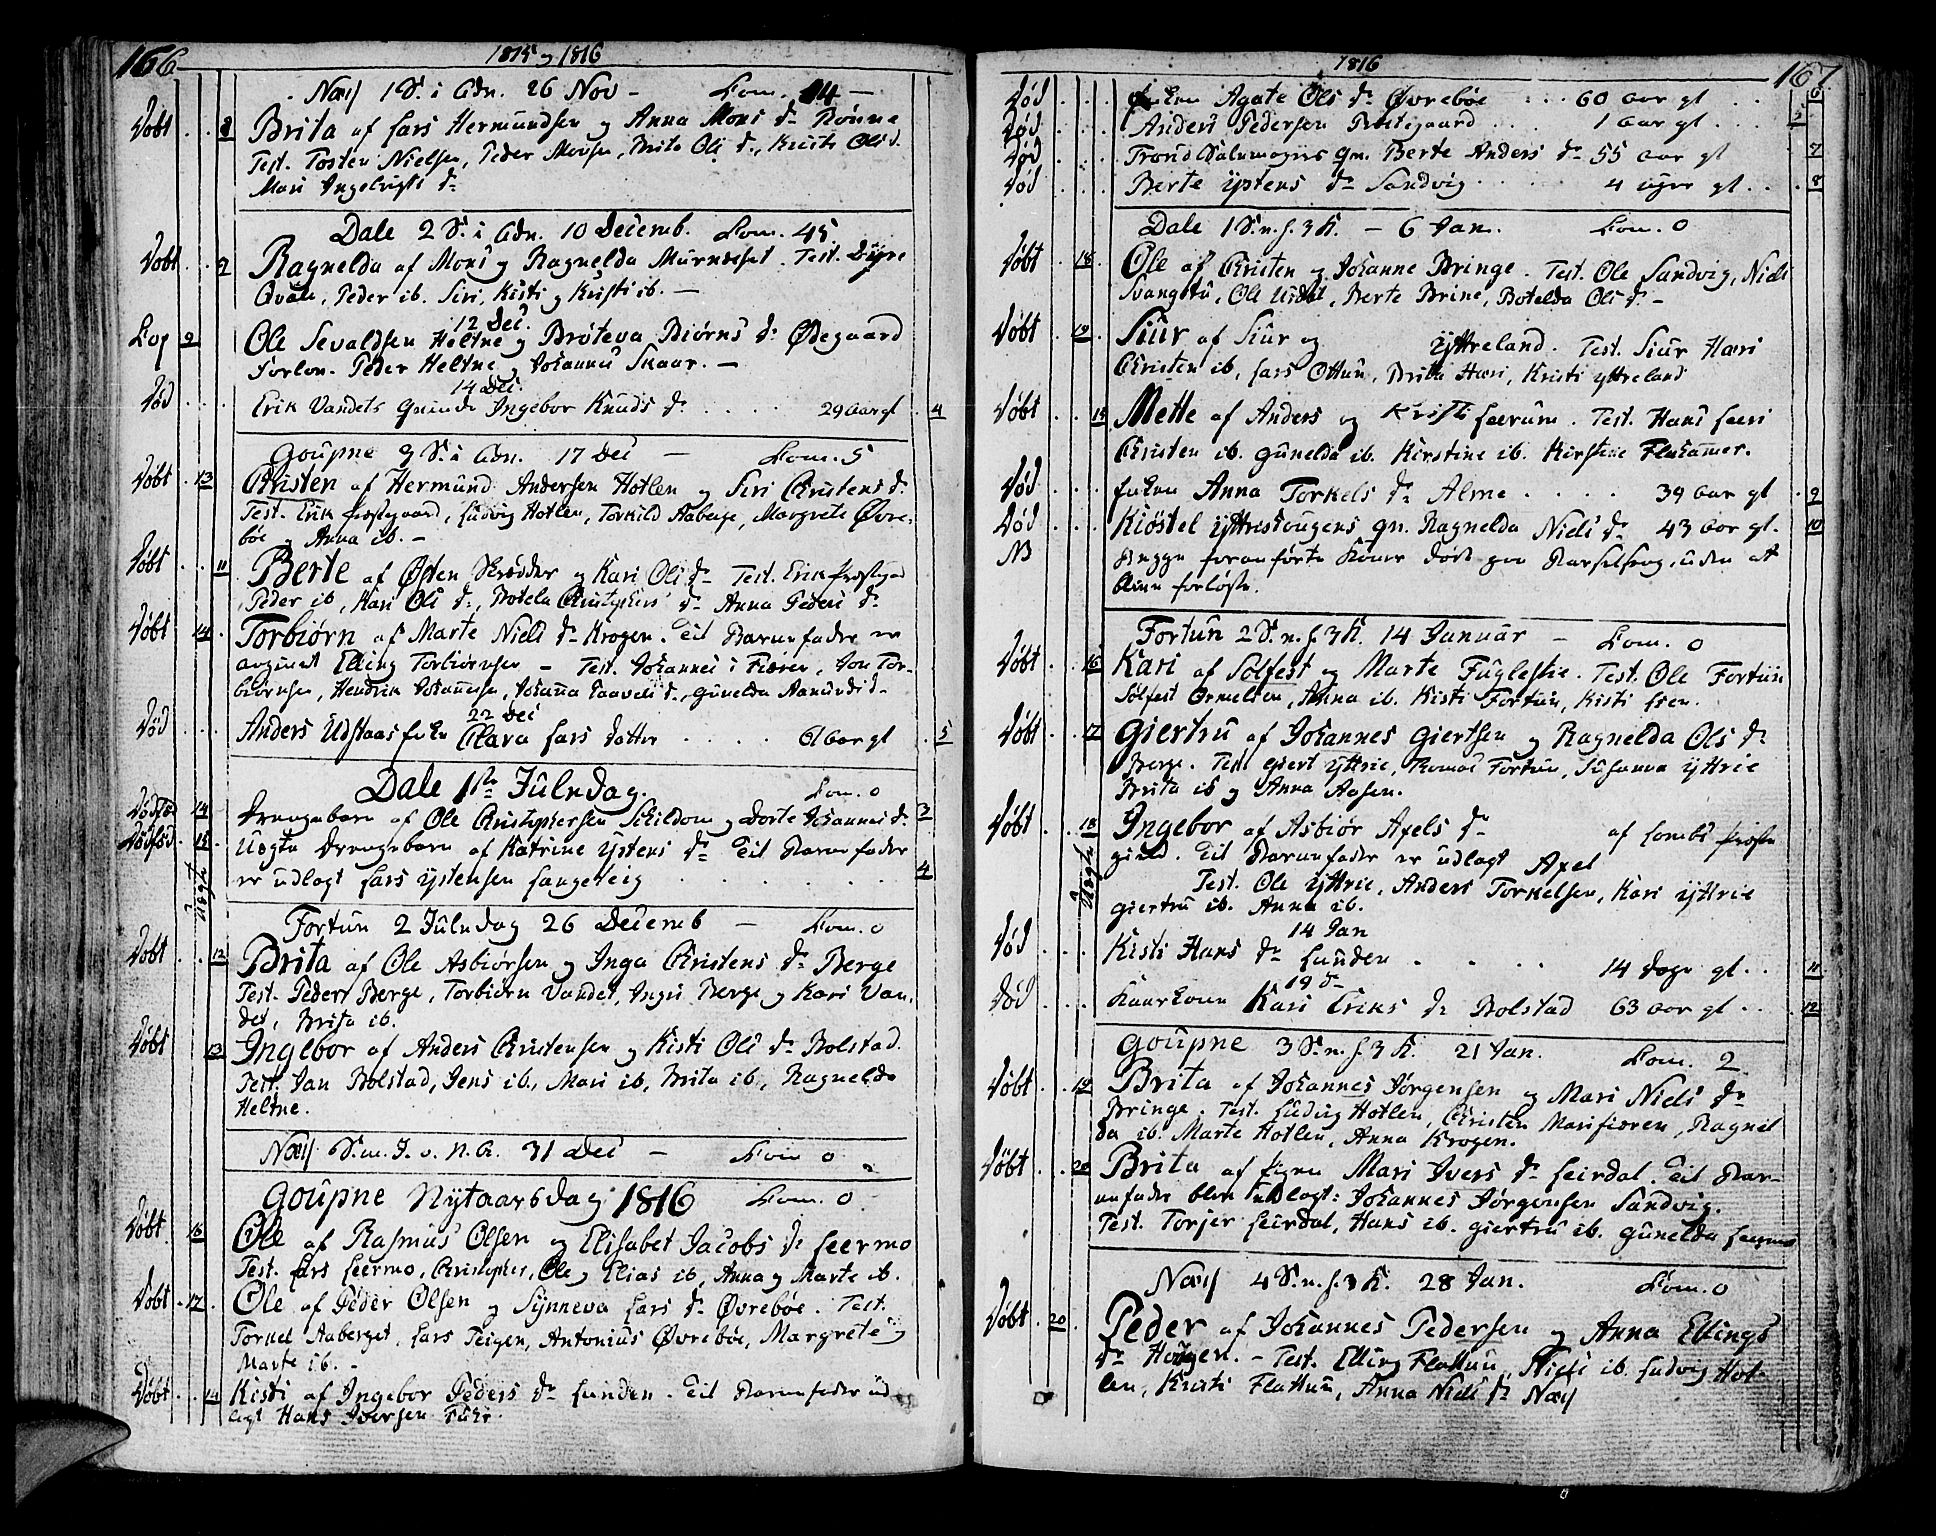 166
1815 og 1816
Næs 1 S. i Adv. 26 Nov - Com. 14 -
Døbt 8 Brita af Lars Hermundsen og Anna Mons dr Rønne
Test. Tosten Nielsen, Peder Monsen, Brita Ols d., Kristi Ols d.
Mari Ingelrigts dr
Dale 2 S. i Adv. 10 Decemb. Com. 45
Døbt 9 Ragnelda af Mons og Ragnelda Murnæset. Test. Dyre
Qvale, Peder ib. Siri, Kisti og Kristi ib. -
12 Dec.
Cop 9 Ole Sevaldsen Heltne og Brøteva Biørns dr Ødegaard
Forlov. Peder Heltne og Johannes Skaar. -
14 Dec.
Død Erik Vandets Qvinde Ingebor Knuds dr 29 aar gl 4
Goupne 3 S. i Adv. 17 Dec - Com. 5
Døbt 13 Christen af Hermund Andersen Hotlen og Siri Christens dr
Test. Erik Prestegaard, Ludvig Hotlen, Torkild Aaberge, Margrete Øvre-
bøe og Anna ib. -
Døbt 11 Berte af Østen Skrædder og Kari Ols dr Test. Erik Prestegrd
Peder ib, Kari Ols d., Botela Christophers dr Anna Peders dr
Døbt 14 Torbiørn af Marte Niels dr Krogen. Til Barnefader er
angivet Elling Torbiørnsen - Test. Johannes i Fiæren, Jon Tor-
biørnsen, Hendrik Johannesen, Johanna Paavels d., Gunelda Aamunds d.
22 Dec
Død Anders Udstaas Enke Clara Lars Datter 61 aar gl 5
Dale 1ste Juledag. Com. 0
Dødfød 14 Drengebarn af Ole Christophersen Skildom og Dorte Johannes d. 3
Dødfød 15 Uægte Drengebarn af Katrine Ystens dr Til Barnefader
er udlagt Lars Ystensen Langeteig 4
Uægte
Fortun 2 Juledag 26 Decemb - Com. 0
Døbt 12 Brita af Ole Asbiørsen og Inga Christens dr Berge
Test. Peder Berge, Torbiørn Vandet, Ingri Berge og Kari Van-
det, Brita ib.
Døbt 13 Ingebor af Anders Christensen og Kisti Ols dr Bolstad.
Test. Jan Bolstad, Jens ib., Mari ib, Brita ib, Ragnelda
Heltne.
Næs S. m. J. o. N. A. 31 Dec - Com 0
Goupne Nytaarsdag 1816 Com. 0
Døbt 16 Ole af Rasmus Olsen og Elisabet Jacobs d. Leermo
Test. Lars Leermo, Christopher, Ole og Elias ib, Anna og Marte ib.
Døbt 17 Ole af Peder Olsen og Synneva Lars dr Øvrebøe. Test.
Torkel Aaberget, Lars Teigen, Antonius Øvrebøe, Margrete og
Marte ib. -
Døbt 14 Kisti af Ingebor Peders dr Lunden. Til Barnefader ud
lagt Hans Iversen Fuhr.
1816
167
Død Enken Agate Ols dr Øvrebøe 60 aar gl 6
Død Anders Pedersen Prestegaard 1 aar gl 5
Død Trond Qvamagns Qv. Berte Anders dr 55 aar gl 7
Død Berte Ystens dr Sandvig 4 uger gl 8
Dale 1 S. n. h. 3 K. - 6 Jan. Com. 0
Døbt 18 Ole af Christen og Johanne Bringe. Test. Ole Sandvig, Niels
Svangstu, Ole Urdal, Berte Brine, Botelda Ols dr -
Døbt 19 Siur af Siur og Yttreland. Test. Siur Hæri
Christen ib, Lars Ottun, Brita Hæri, Kristi Yttreland
Døbt 15 Mette af Anders og Kristi Leerum. Test. Hans Leeri
Christen ib. Gunelda ib. Kirstine ib. Kirstine Flahammer.
Død Enken Anna Torkels dr Alme 39 aar gl 9
Død Kiøstel Yttrestougens Qv. Ragnelda Niels dr 43 aar gl. 10
NB Begge foranførte Koner døde paa Barselseng, uden at
blive forløste.
Fortun 2 S. n. h. 3 K. 14 Januar - Com. 0
Døbt 16 Kari af Solfest og Marte Fugleskie. Test. Ole Fortun
Solfest Ormelien, Anna ib. Kisti Fortun, Kisti Eien.
Døbt 17 Giertru af Johannes Giertsen og Ragnelda Ols dr
Berge. Test Giert Yttrie, Thomas Fortun, Susanna Yttrie
Brita ib og Anna Aasen.
Døbt 18 Ingebor af Asbiør Axels dr af Lombs Preste
gield. Til Barnefader er udlagt Axel
Test. Ole Yttrie, Anders Torkelsen, Kari Yttrie
Giertru ib. Anna ib.
Uægte
14 Jan
Død Kisti Hans dr Lunden 14 dage gl. 11
19 d
Død Kaarkone Kari Eriks dr Bolstad 63 aar gl 12
Goupne 3 S. n. h. 3 K. 21 Jan. Com. 2
Døbt 19 Brita af Johannes Jørgensen og Mari Niels dr
Bringe. Test. Ludvig Hotlen, Christen Marifiæren, Ragnil
da ib. Marte Hotlen, Anna Krogen.
Døbt 20 Brita af Pigen Mari Ivers dr Leirdal. Til Bar-
nefader blev udlagt: Johannes Jørgensen Sandvig.
Test. Torjer Leirdal, Hans ib. Giertru ib. Gunelda Leermo
Næs 4 S. n. h. 3 K. 28 Jan. Com. 0
Døbt 20 Peder af Johannes Pedersen og Anna Ellings
dr Haugen. - Test. Elling Flattun, Niels ib. Ludvig Hot-
len, Kristi Flattun, Anna Niels dr Næs